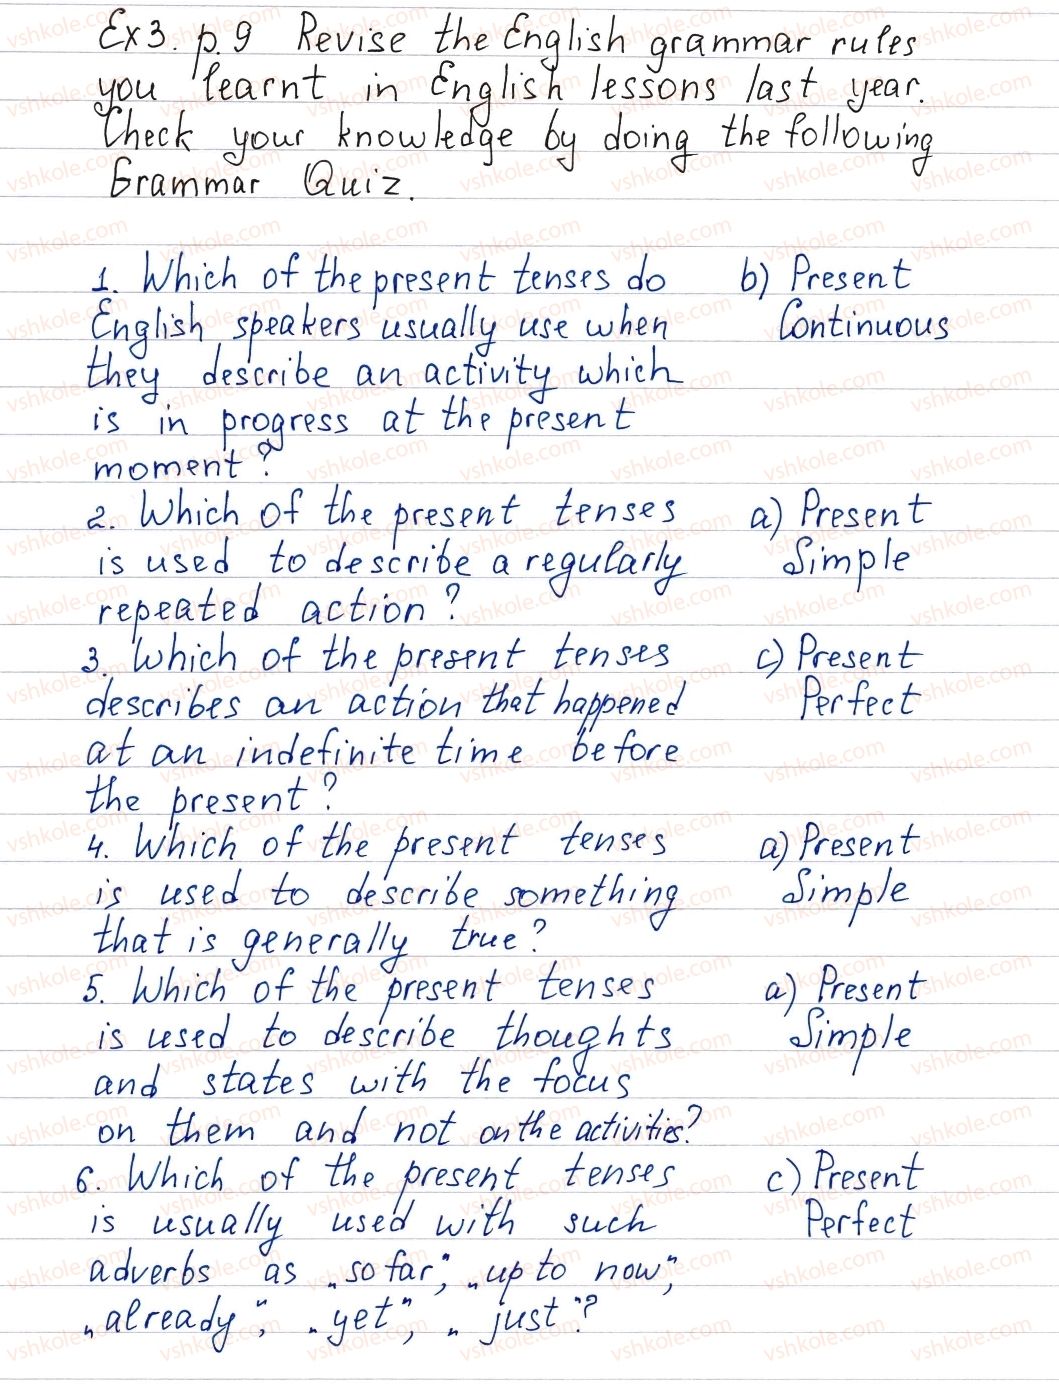 Ex 3. p. 9 Revise the English grammar rules
you learnt in English lessons last year.
Check your knowledge by doing the following
Grammar Quiz.
1. Which of the present tenses do b) Present
English speakers usually use when Continuous
they describe an activity which
is in progress at the present
moment?
2. Which of the present tenses a) Present
is used to describe a regularly Simple
repeated action?
3. Which of the present tenses c) Present
describes an action that happened Perfect
at an indefinite time before
the present?
4. Which of the present tenses a) Present
is used to describe something Simple
that is generally true?
5. Which of the present tenses a) Present
is used to describe thoughts Simple
and states with the focus
on them and not on the activities?
6. Which of the present tenses c) Present
is usually used with such Perfect
adverbs as „so far", „up to now",
„already", „yet", „just"?
vshkole.com